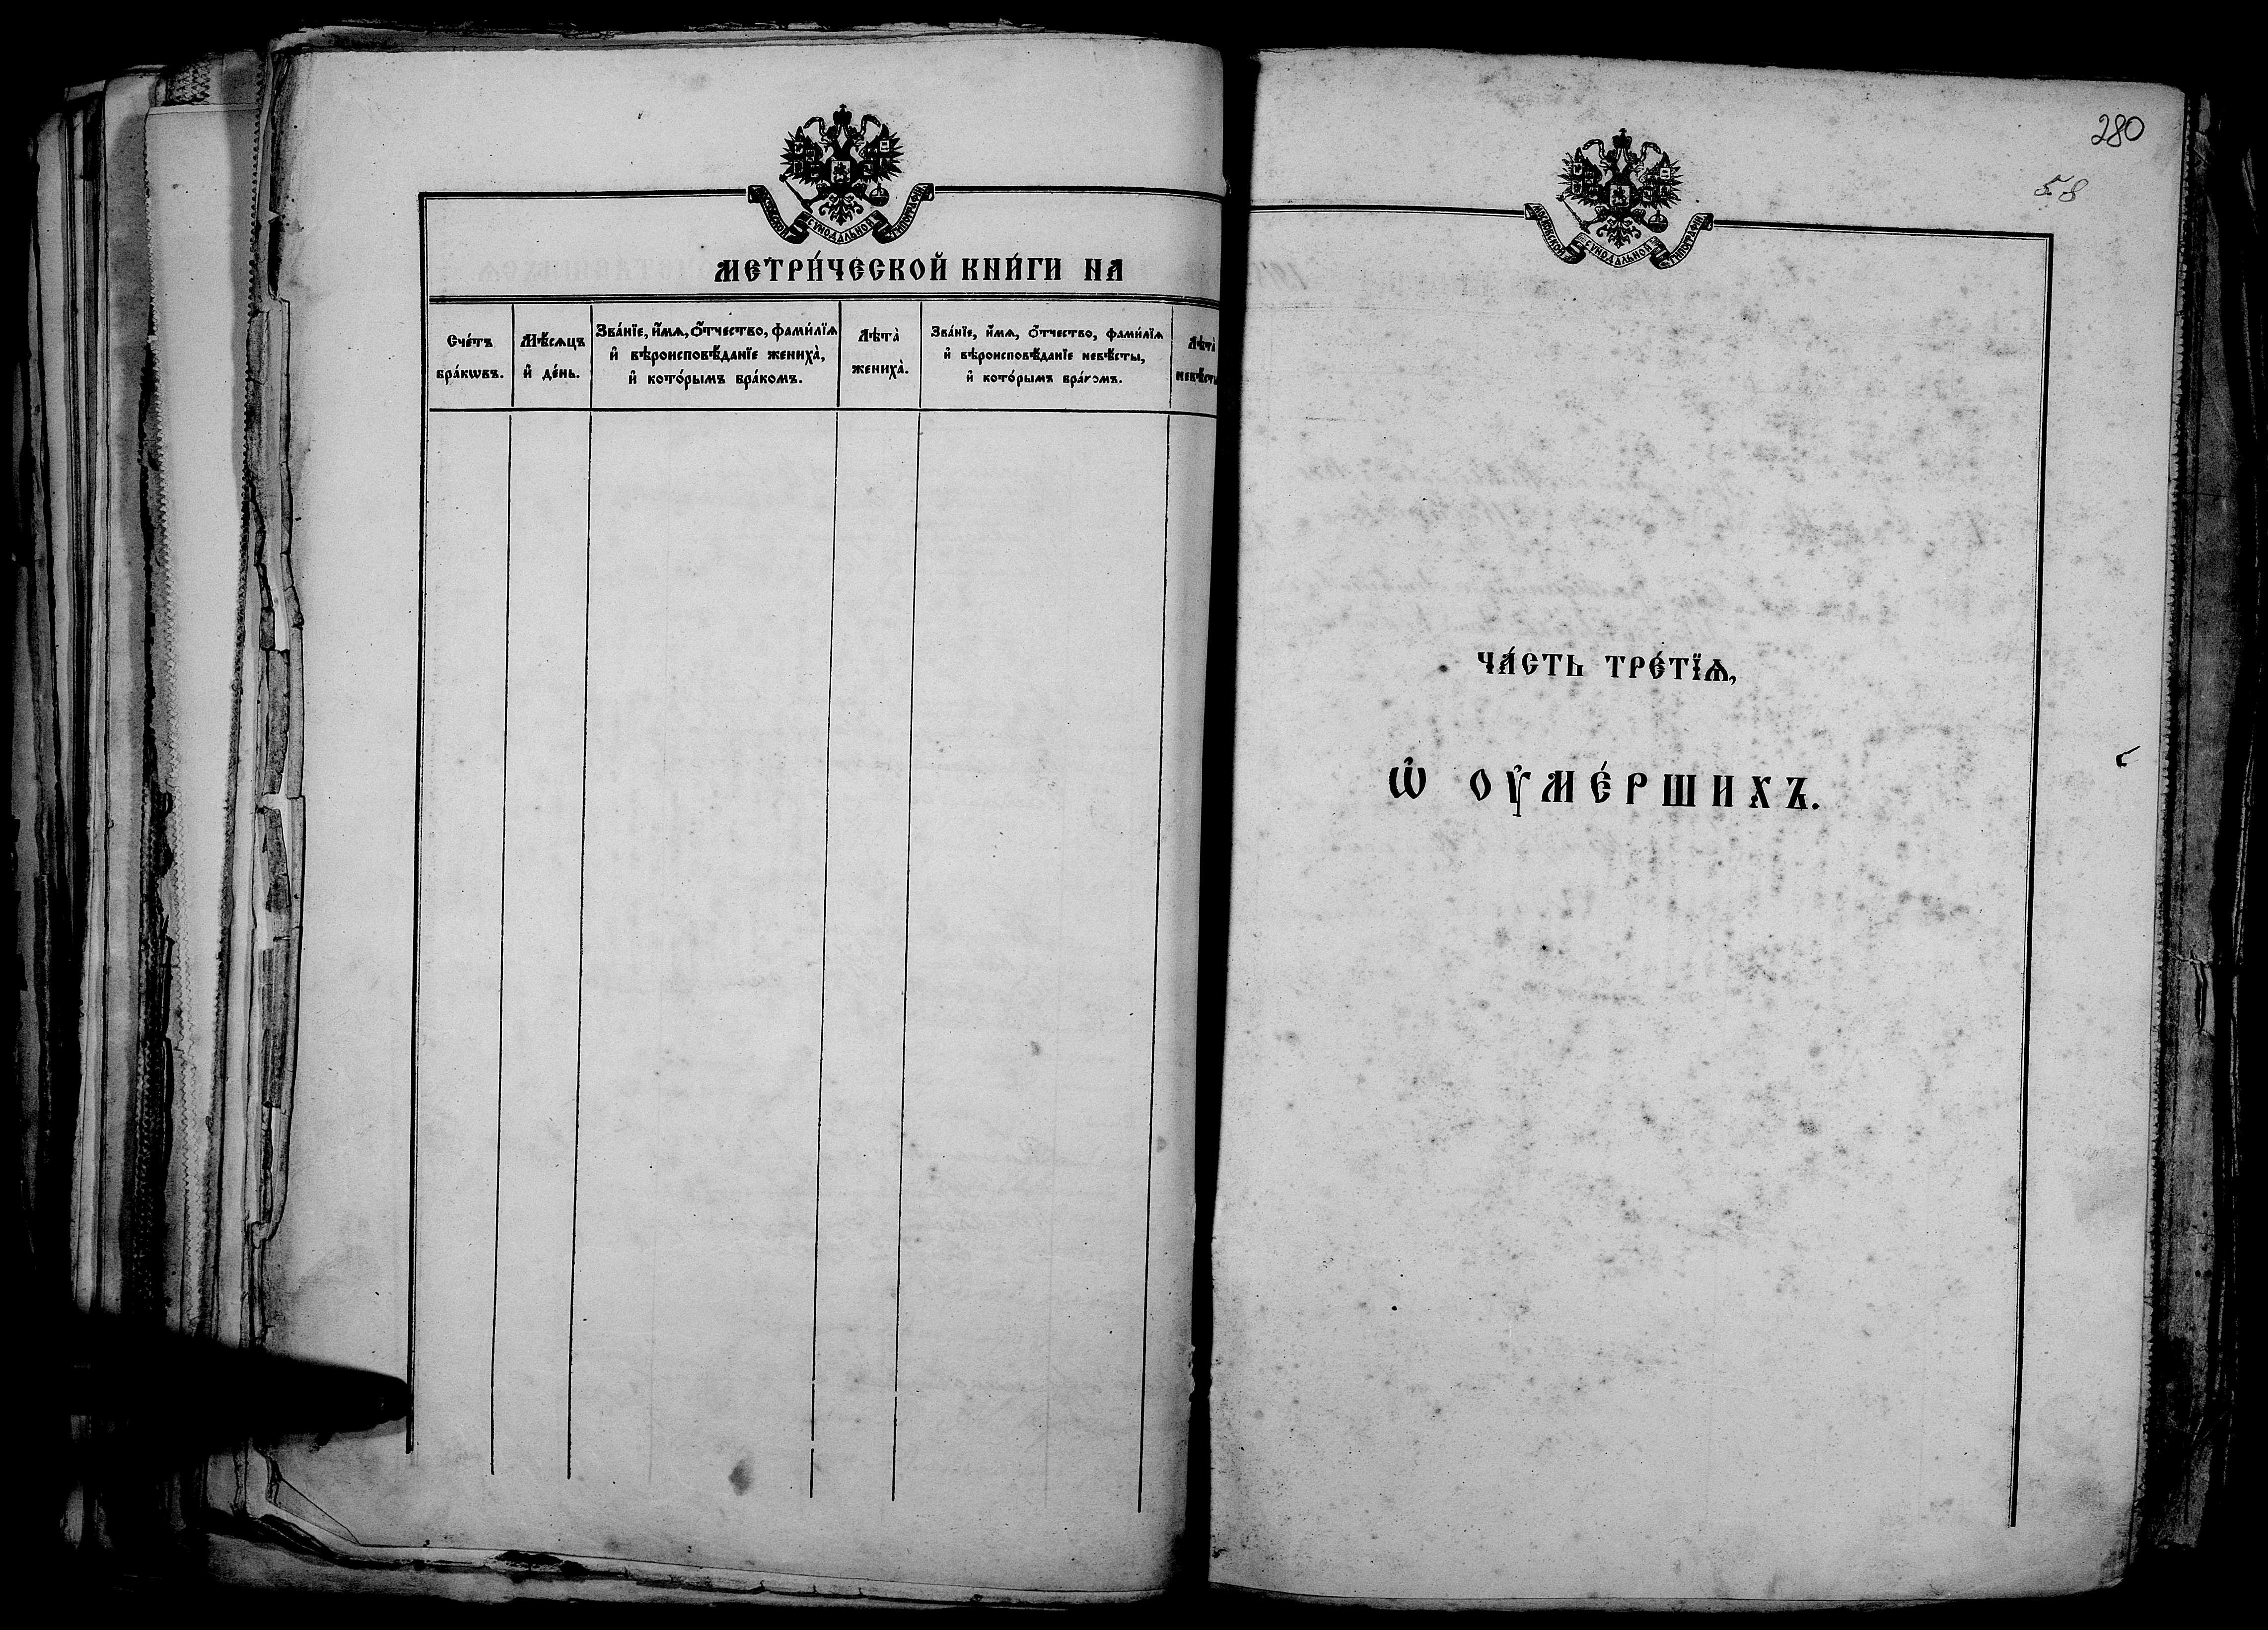 МОСКОВСКОЙ СѴНОДАЛЬНОЙ ТИПОГРАФІИ
МЕТРИ́ЧЕСКОЙ КНИ́ГИ НА
Сче́тъ бра́кѡвъ.
Мѣ́сѧцъ и҆ де́нь.
Зва́нїе, и҆́мѧ, ѻ҆́тчество, фами́лїѧ
и҆ вѣроисповѣ́данїе жениха̀,
и҆ кото́рымъ бра́комъ.
Лѣта̀ жениха̀.
Зва́нїе, и҆́мѧ, ѻ҆́тчество, фами́лїѧ
и҆ вѣроисповѣ́данїе невѣ́сты,
и҆ кото́рымъ бра́комъ.
Лѣта̀
280
58
МОСКОВСКОЙ СѴНОДАЛЬНОЙ ТИПОГРАФІИ
ЧА́СТЬ ТРЕ́ТЇѦ,
Ѡ҆ ОУ҆МЕ́РШИХЪ.